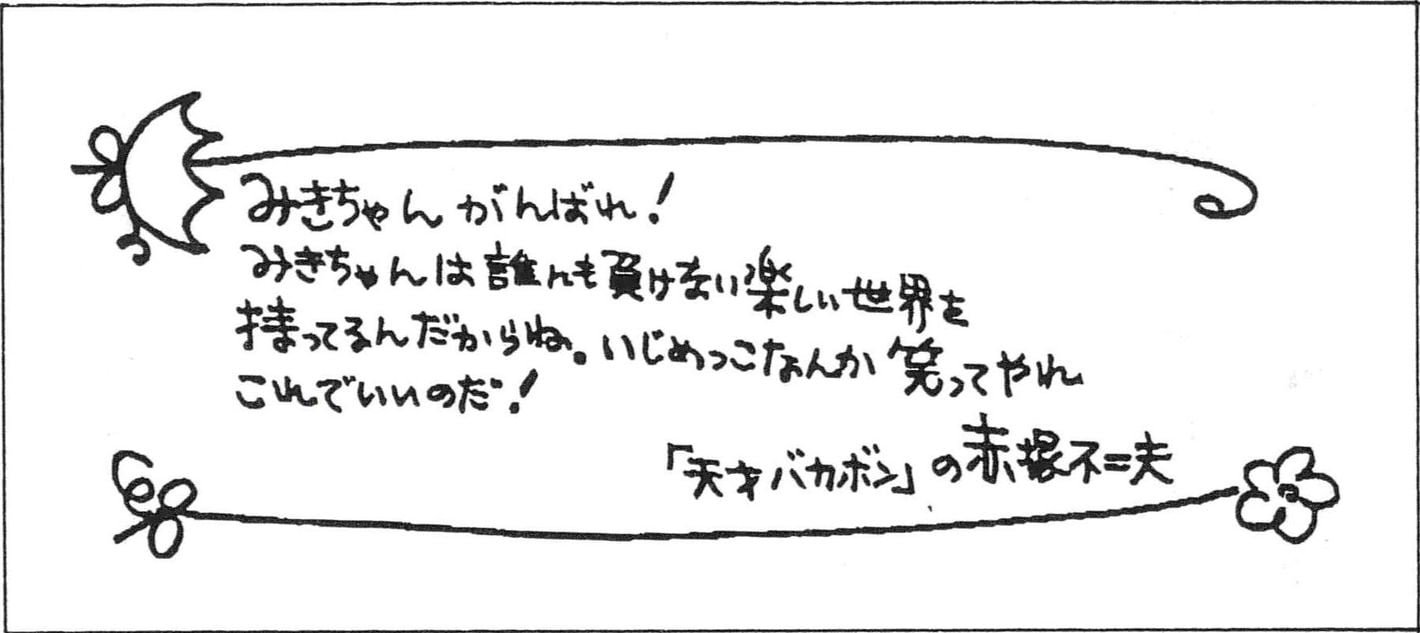 みきちゃん がんばれ!
みきちゃんは誰にも負けない楽しい世界を
持ってるんだからね。いじめっこなんか笑ってやれ
これでいいのだ!
「天才バカボン」の赤塚不二夫